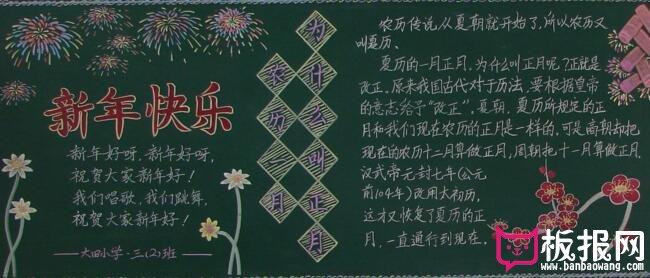 新年快乐
新年好呀，新年好呀，
祝贺大家新年好！
我们唱歌，我们跳舞，
祝贺大家新年好！
——大田小学·三(2)班——
农历一月
为什么叫正月
农历传说从夏朝就开始了，所以农历又
叫夏历。
夏历的一月正月，为什么叫正月呢？正就是
改正。原来我国古代对于历法，要根据皇帝
的意志给予“改正”。夏朝，夏历所规定的正
月和我们现在农历的正月是一样的，可是商朝却把
现在的农历十二月算做正月，周朝把十一月算做正月，
汉武帝元封七年（公元
前104年）改用太初历，
这才又恢复了夏历的正
月，一直通行到现在。
板报网
www.banbaowang.com